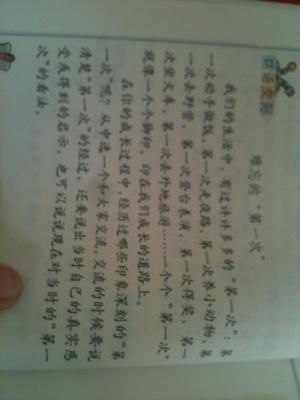 口语交际
难忘的“第一次”
我们的生活中，有过许许多多的“第一次”：第
一次动手做饭，第一次走夜路，第一次养小动物，第
一次去野营，第一次登台表演，第一次得奖，第一
次坐火车，第一次去外地旅游……一个个“第一次”
就像一个个脚印，印在我们成长的道路上。
在你的成长过程中，经历过哪些印象深刻的“第
一次”呢？从中选一个和大家交流。交流的时候要说
清楚“第一次”的经过，还要说出当时自己的真实感
受或得到的启示，也可以说说现在对当时的“第一
次”的看法。